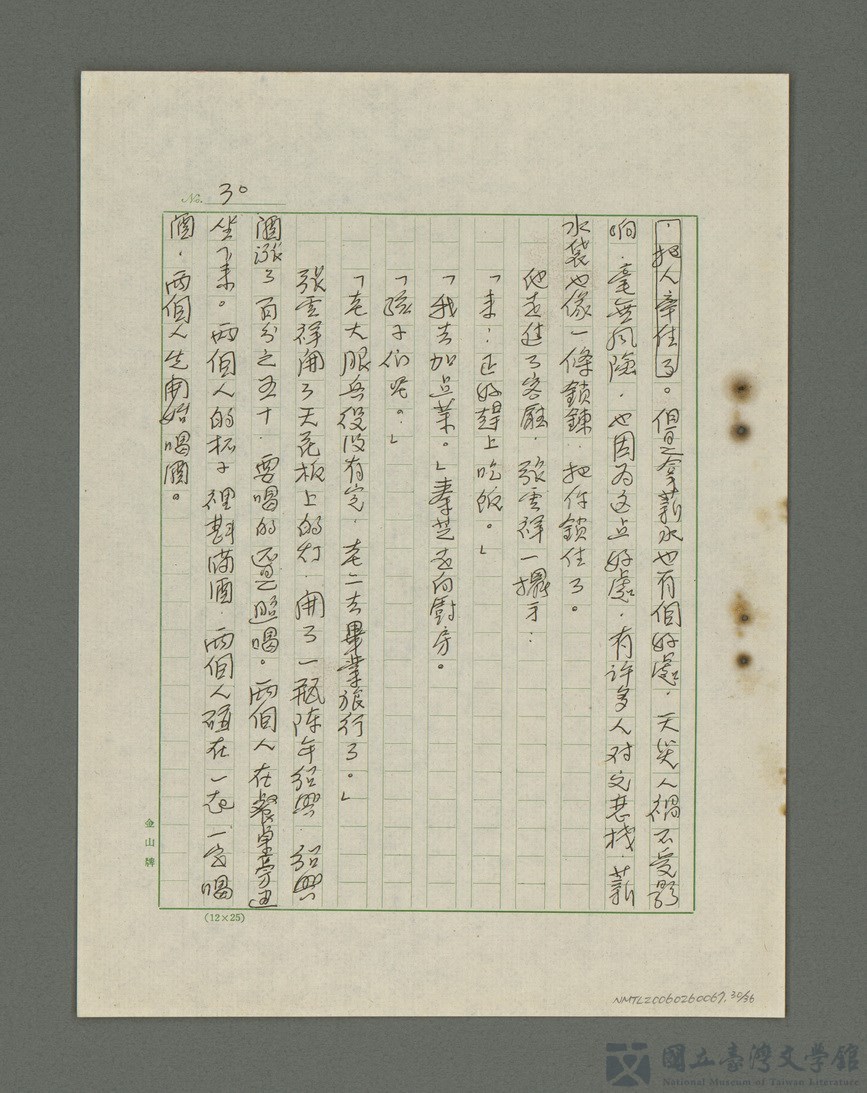 No. 30
，把人牽住了。但是拿薪水也有個好處，天災人禍不受影
响，毫無风險，也因为这点好處，有许多人对文恋栈，薪
水袋也像一條鎖鍊，把你鎖住了。
他走進了客廳，張雲祥一擺手：
「来，正好趕上吃飯。」
「我去加点菜。」秦芝走向厨房。
「孩子们呢。」
「老大服兵役没有完，老二去畢業旅行了。」
張雲祥開了天花板上的灯，開了一瓶陈年绍興，绍興
酒漲了百分之五十，要喝的还是照喝。两個人在餐桌旁边
坐下来。两個人的杯子裡斟滿酒，两個人碰在一起，一定喝
酒，两個人先開始喝酒。
金山牌
(12×25)
NMTL20060260067, 30/36
國立臺灣文學館
National Museum of Taiwan Literature